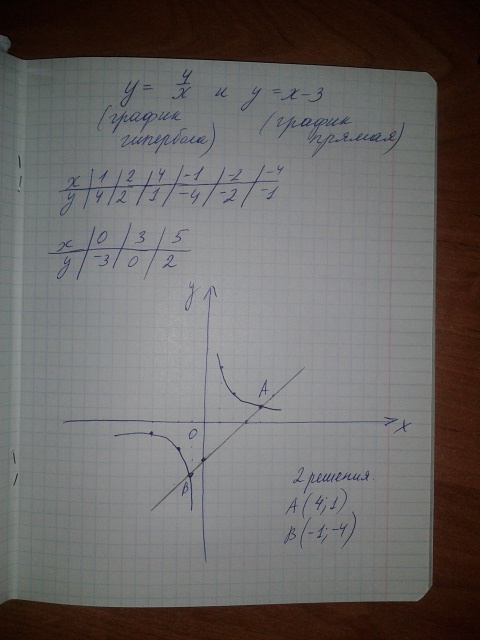 y = 4/x и y = x-3
(график гипербола) (график прямая)
x | 1 | 2 | 4 | -1 | -2 | -4
y | 4 | 2 | 1 | -4 | -2 | -1
x | 0 | 3 | 5
y | -3 | 0 | 2
y
A
O
x
B
2 решения.
A (4;1)
B (-1;-4)